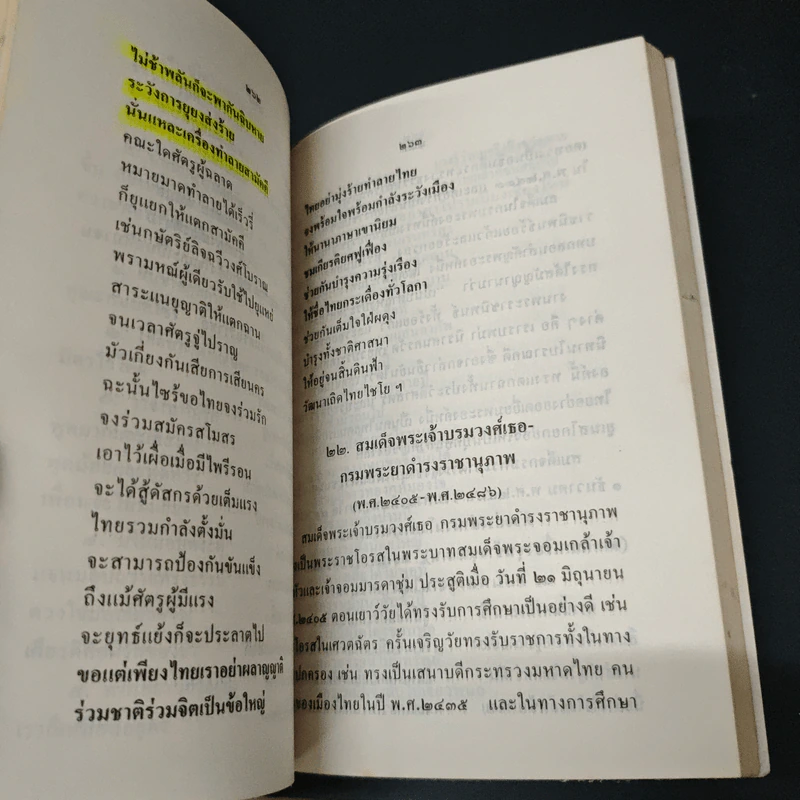 ๒๖๒
ไม่ช้าพลันก็จะพากันฉิบหาย
ระวังการยุยงส่งร้าย
นั่นแหละเครื่องทำลายสามัคคี
คณะใดศัตรูผู้ฉลาด
หมายมาดทำลายได้เร็วรี่
ก็ยุแยกให้แตกสามัคคี
เช่นกษัตริย์ลิจฉวีวงศ์โบราณ
พราหมณ์ผู้เดียวรับใช้ไปยุแหย่
สาระแนยุญาติให้แตกฉาน
จนเวลาศัตรูจู่ไปราญ
มัวเกี่ยงกันเสียการเสียนคร
ฉะนั้นไซร้ขอไทยจงร่วมรัก
จงร่วมสมัครสโมสร
เอาไว้เผื่อเมื่อมีไพรีรอน
จะได้สู้ดัสกรด้วยเต็มแรง
ไทยรวมกำลังตั้งมั่น
จะสามารถป้องกันขันแข็ง
ถึงแม้ศัตรูผู้มีแรง
จะยุทธ์แย้งก็จะปลาตไป
ขอแต่เพียงไทยเราอย่าผลาญญาติ
ร่วมชาติร่วมจิตเป็นข้อใหญ่
๒๖๓
ไทยอย่ามุ่งร้ายทำลายไทย
จงพร้อมใจพร้อมกำลังระวังเมือง
ให้นานาภาษาเขานิยม
ชมเกียรติยศฟูเฟื่อง
ช่วยกันบำรุงความรุ่งเรือง
ให้ชื่อไทยกระเดื่องทั่วโลกา
ช่วยกันเต็มใจใฝ่ผดุง
บำรุงทั้งชาติศาสนา
ให้อยู่จนสิ้นดินฟ้า
วัฒนาเถิดไทยไชโย ฯ
๒๒. สมเด็จพระเจ้าบรมวงศ์เธอ-
กรมพระยาดำรงราชานุภาพ
(พ.ศ.๒๔๐๕-พ.ศ.๒๔๘๖)
สมเด็จพระเจ้าบรมวงศ์เธอ กรมพระยาดำรงราชานุภาพ
เป็นพระราชโอรสในพระบาทสมเด็จพระจอมเกล้าเจ้า
และเจ้าจอมมารดาชุ่ม ประสูติเมื่อ วันที่ ๒๑ มิถุนายน
๒๔๐๕ ตอนเยาว์วัยได้ทรงรับการศึกษาเป็นอย่างดี เช่น
โอรสในเศวตฉัตร ครั้นเจริญวัยทรงรับราชการทั้งในทาง
ปกครอง เช่น ทรงเป็นเสนาบดีกระทรวงมหาดไทย คน
ของเมืองไทยในปี พ.ศ.๒๔๓๕ และในทางการศึกษา